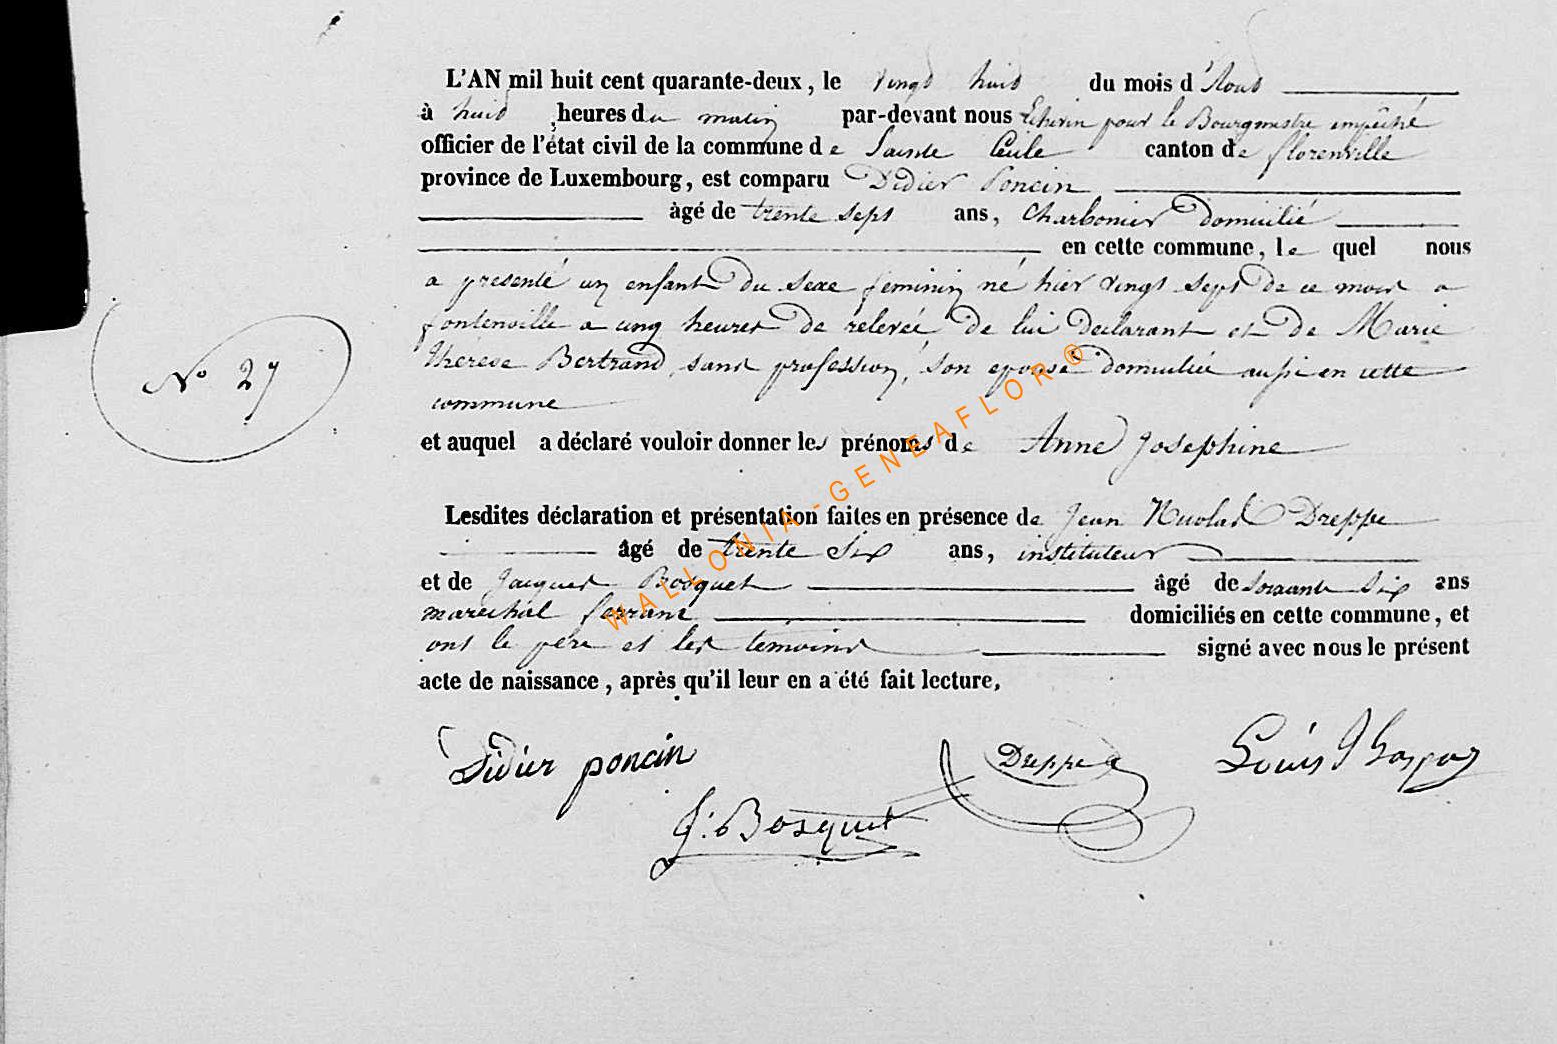 L'AN mil huit cent quarante-deux, le vingt huit du mois d'Aout
à huit heures du matin par-devant nous Echevin pour le Bourgmestre empêché
officier de l'état civil de la commune de Sainte Cécile canton de florenville
province de Luxembourg, est comparu Didier Poncin
âgé de trente sept ans, Charbonier Domicilié
en cette commune, le quel nous
a présenté un enfant Du Sexe féminin né hier vingt sept de ce mois a
fontenoille a cinq heures De relevée De lui Declarant et De Marie
Thérèse Bertrand, sans profession, son epouse domiciliée aussi en cette
commune
et auquel a déclaré vouloir donner les prénoms de Anne Josephine
Lesdites déclaration et présentation faites en présence de Jean Nicolas Dreppe
âgé de trente Six ans, instituteur
et de Jacques Bosquet âgé de Soixante Six ans
marechal ferrant domiciliés en cette commune, et
ont le père et les temoins signé avec nous le présent
acte de naissance, après qu'il leur en a été fait lecture,
No 27
Didier poncin
Dreppe
Louis
J. Bosquet
WALLONIA-GENEAFLOR®